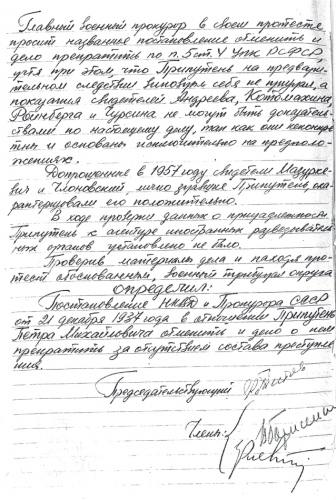 Главный военный прокурор в своем протесте
просит названное постановление отменить и
дело прекратить по п. 5 ст. 4 УПК РСФСР,
учтя при этом, что Припутень на предвари-
тельном следствии виновным себя не признал, а
показания свидетелей Андреева, Котомахина,
Файнберга и Чурсина не могут быть доказатель-
ствами по настоящему делу, так как они неконкре-
тны и основаны исключительно на предполо-
жениях.
Допрошенные в 1957 году свидетели Мазурке-
вич и Членовский, лично знавшие Припутень, оха-
рактеризовали его положительно.
В ходе проверки данных о принадлежности
Припутень к агентуре иностранных разведыватель-
ных органов установлено не было.
Проверив материалы дела и находя про-
тест обоснованным, военный трибунал округа
определил:
Постановление НКВД и Прокурора СССР
от 21 декабря 1937 года в отношении Припутень
Петра Михайловича отменить и дело о нем
прекратить за отсутствием состава преступле-
ния.
Председательствующий
Члены: